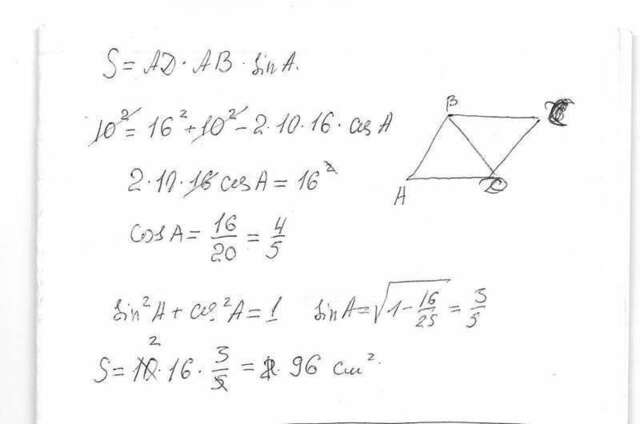 S = AD · AB · sin A.
10² = 16² + 10² - 2 · 10 · 16 · cos A
B
2 · 10 · 16 cos A = 16²
A
D
cos A = 16/20 = 4/5
sin²A + cos²A = 1 sin A = √(1 - 16/25) = 3/5
2
S = 10 · 16 · 3/5 = 96 см²